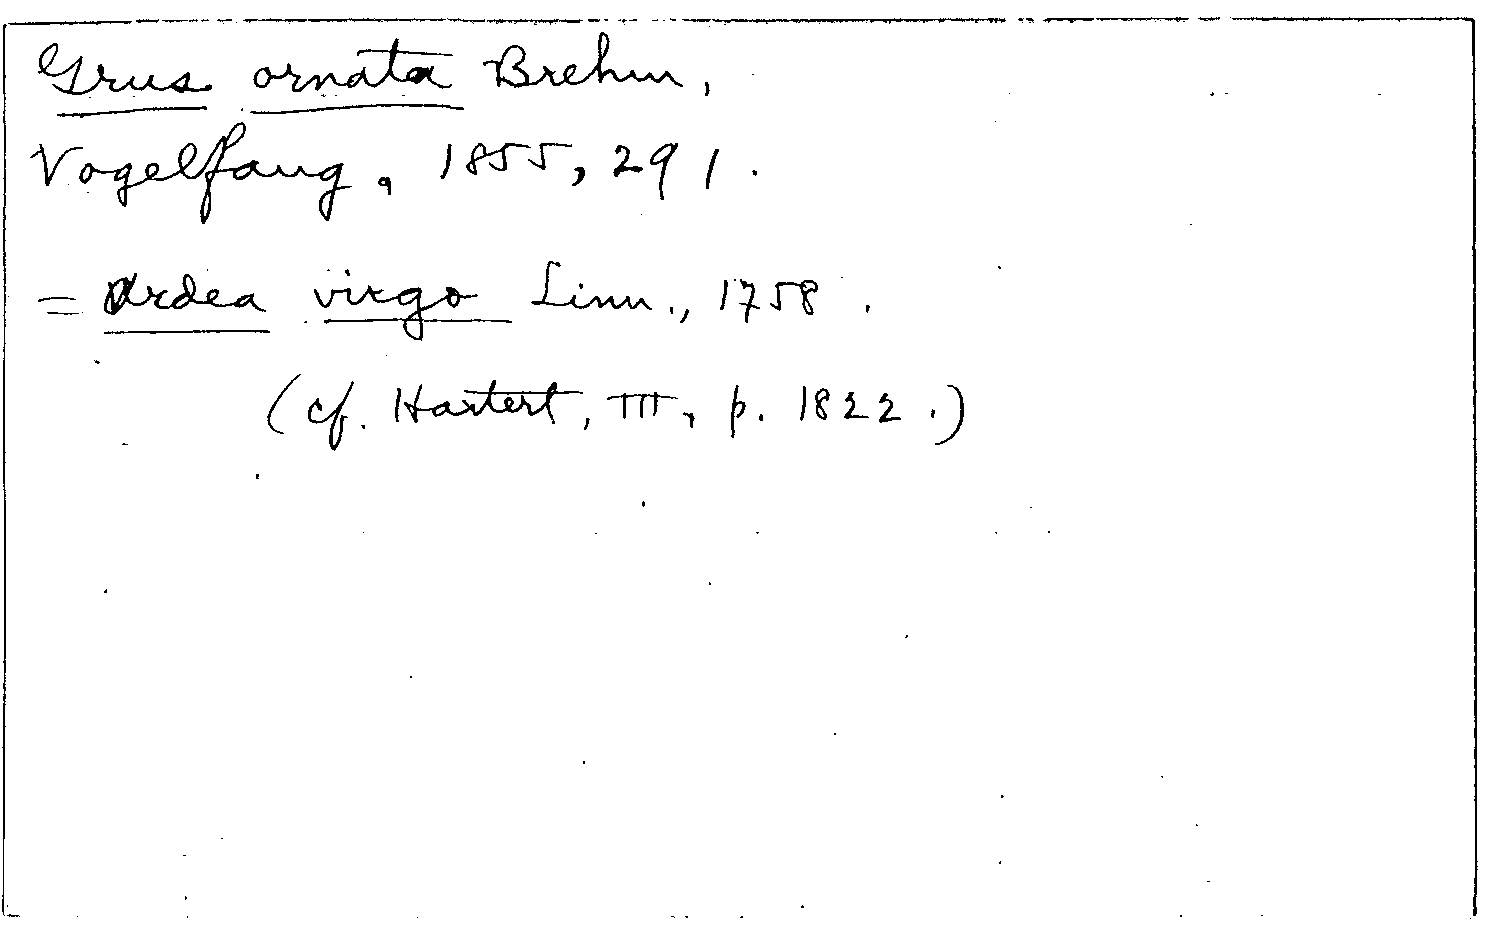 Grus ornata Brehm,
Vogelfang, 1855, 291.
= Ardea virgo Linn., 1758.
(cf. Hartert, III, p. 1822.)